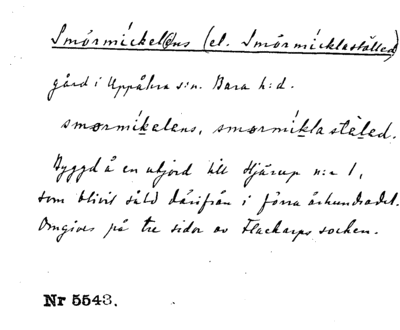 Smörmickelens (el. Smörmicklastället)
gård i Uppåkra s:n. Bara h:d.
smørmikelens, smørmikla stäled.
Byggd å en utjord till Hjärup n:r 1,
som blivit såld därifrån i förra århundradet.
Omgives på tre sidor av Flackarps socken.
Nr 5543.